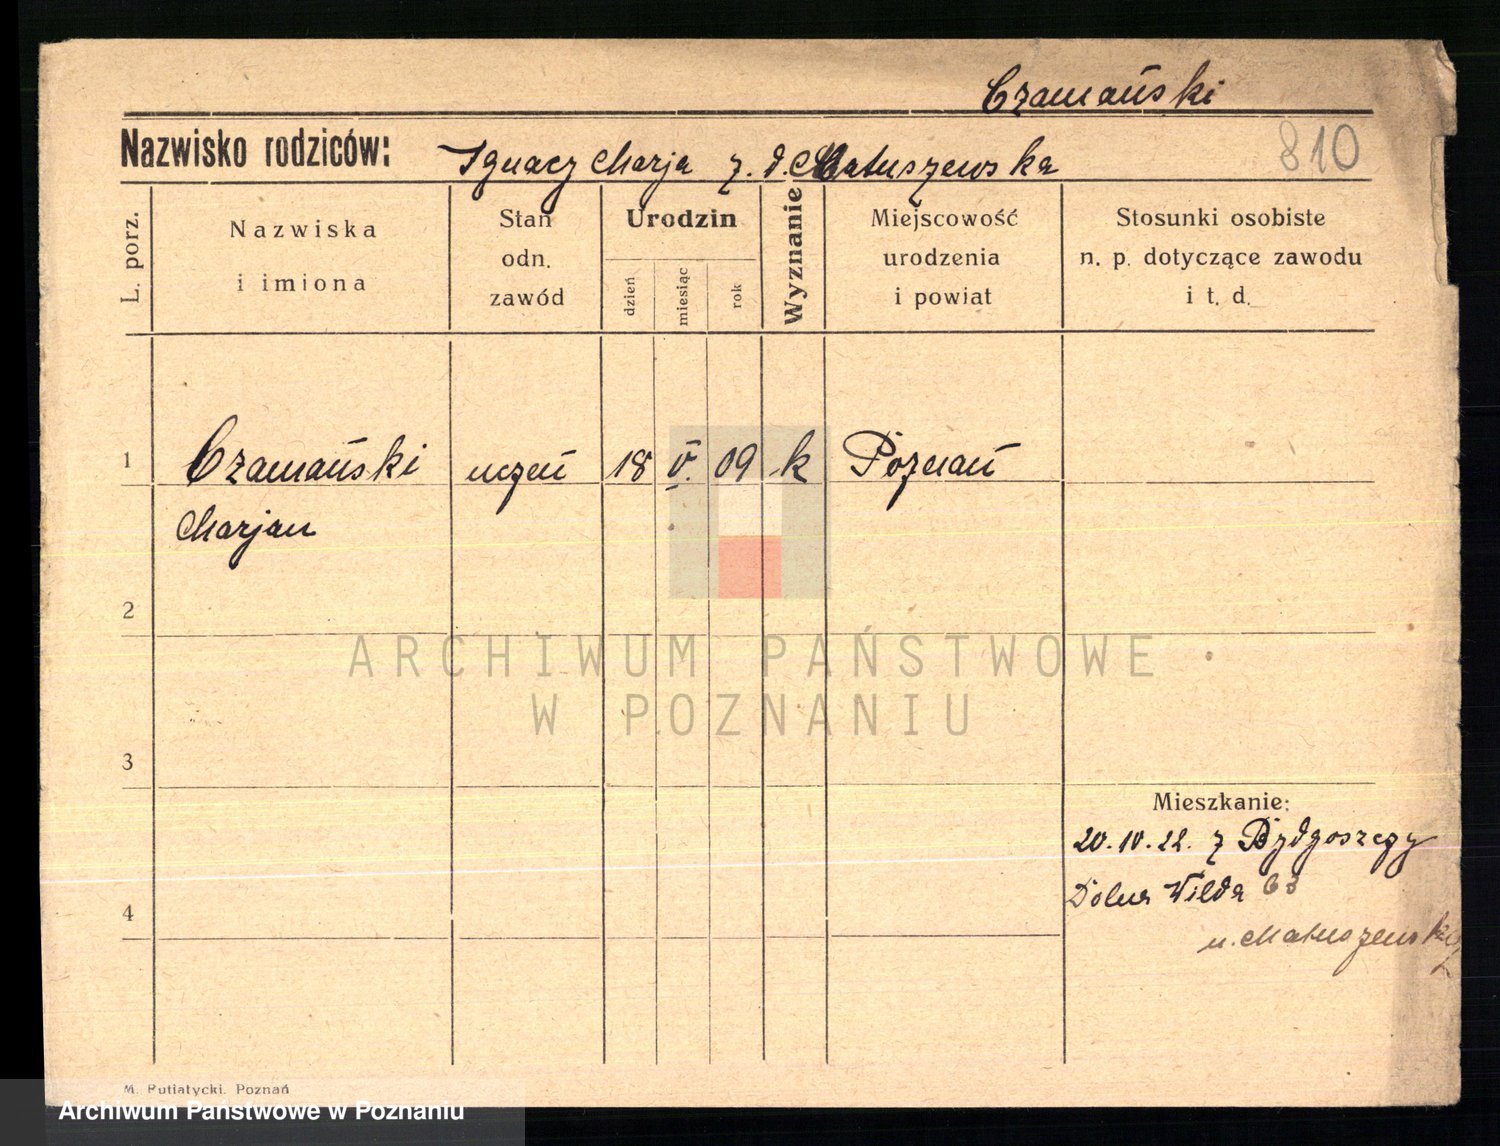 Czamański
Nazwisko rodziców: Ignacy Marja z. d. Matuszewska
810
L. porz.
Nazwiska
i imiona
Stan
odn.
zawód
Urodzin
dzień
miesiąc
rok
Wyznanie
Miejscowość
urodzenia
i powiat
Stosunki osobiste
n. p. dotyczące zawodu
i t. d.
1
Czamański uczeń 18 V. 09 k Poznań
Marjan
2
ARCHIWUM PAŃSTWOWE
W POZNANIU
3
Mieszkanie:
20.10.22. z Bydgoszczy
4
Dolna Wilda 63
u. Matuszewskiej
M. Putiatycki. Poznań
Archiwum Państwowe w Poznaniu